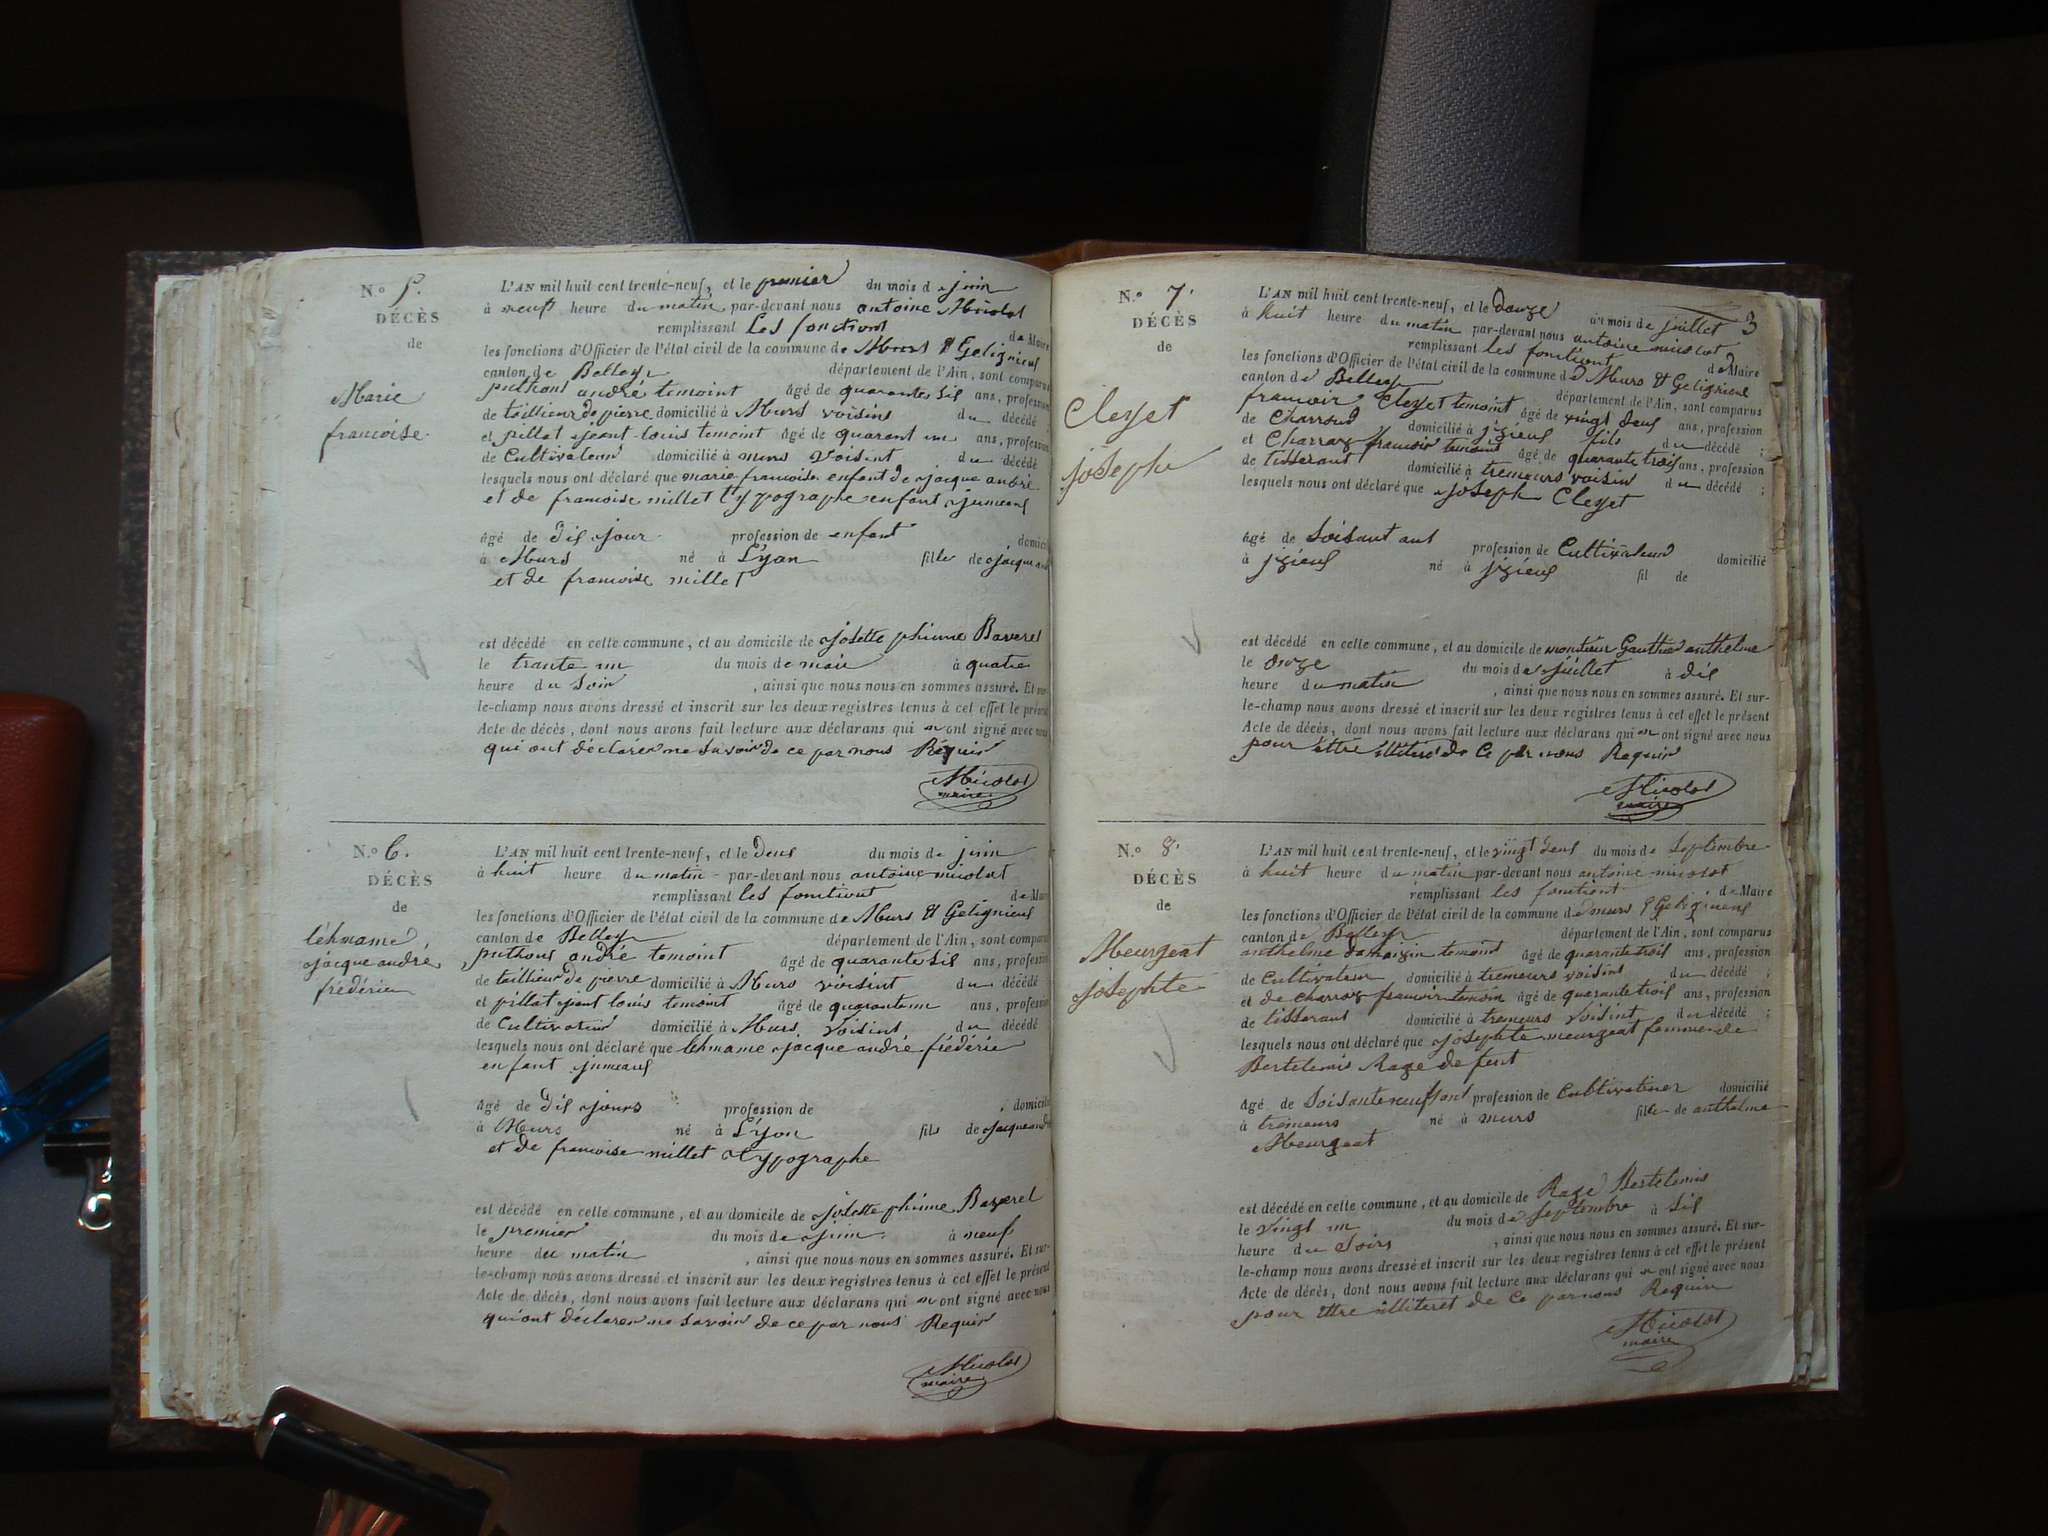 N.o 5.
DÉCÈS
de
Marie
francoise.
L'AN mil huit cent trente-neuf, et le premier du mois de juin
à neuf heure du matin par-devant nous antoine Micolot
remplissant les fonctions de Maire
les fonctions d'Officier de l'état civil de la commune de Murs & Gelignieux
canton de Belley département de l'Ain, sont comparus
puthous andré temoint âgé de quarante sis ans, profession
de taillieur de pierre domicilié à Murs voisins du décédé
et pillat jeant louis temoint âgé de quarant un ans, profession
de Cultivateur domicilié à murs voisint du décédé
lesquels nous ont déclaré que marie francoise enfent de jacque andre
et de francoise millet typographe enfant jumeaus
âgé de dis jour profession de enfant domicilié
à Murs né à Lyon fille de jacque and
et de francoise millet
est décédé en cette commune, et au domicile de josette phinne Baverel
le trante un du mois de mai à quatre
heure du soir , ainsi que nous nous en sommes assuré. Et sur-
le-champ nous avons dressé et inscrit sur les deux registres tenus à cet effet le présent
Acte de décès, dont nous avons fait lecture aux déclarans qui n ont signé avec nous
qui ont déclarer ne savoir de ce par nous Requir
Micolot
maire
N.o 6.
DÉCÈS
de
léhmame
jacque andré
frédéric
L'AN mil huit cent trente-neuf, et le deus du mois de juin
à huit heure du matin par-devant nous antoine micolot
remplissant les fonctiont de Maire
les fonctions d'Officier de l'état civil de la commune de Murs & Gelignieus
canton de Belley département de l'Ain, sont comparus
puthous andré temoint âgé de quarante sis ans, profession
de taillieur de pierre domicilié à Murs voisint du décédé
et pillat jeant louis temoint âgé de quarant un ans, profession
de Cultivateur domicilié à Murs voisint du décédé
lesquels nous ont déclaré que léhmame jacque andré frédéric
enfant jumeaus
âgé de dis jours profession de domicilié
à Murs né à Lyon fils de jacque and
et de francoise millet typographe
est décédé en cette commune, et au domicile de josette phinne Baverel
le premier du mois de juin à neuf
heure du matin , ainsi que nous nous en sommes assuré. Et sur-
le-champ nous avons dressé et inscrit sur les deux registres tenus à cet effet le présent
Acte de décès, dont nous avons fait lecture aux déclarans qui n ont signé avec nous
qui ont déclarer ne savoir de ce par nous Requir
Micolot
maire
3
N.o 7.
DÉCÈS
de
Cleyet
joseph
L'AN mil huit cent trente-neuf, et le douze du mois de juillet
à huit heure du matin par-devant nous antoine micolot
remplissant les fonctiont de Maire
les fonctions d'Officier de l'état civil de la commune de Murs & Gelignieus
canton de Belley département de l'Ain, sont comparus
francois Cleyet temoint âgé de vingt deus ans, profession
de Charrond domicilié à jzieus fils du décédé ;
et Charray francois temoint âgé de quarante trois ans, profession
de tisserant domicilié à tremeurs voisin du décédé ;
lesquels nous ont déclaré que joseph Cleyet
âgé de soisant ans profession de Cultivateur domicilié
à jzieus né à jzieus fil de
est décédé en cette commune, et au domicile de montieur Gauthier anthelme
le onze du mois de juillet à dis
heure du matin , ainsi que nous nous en sommes assuré. Et sur-
le-champ nous avons dressé et inscrit sur les deux registres tenus à cet effet le présent
Acte de décès, dont nous avons fait lecture aux déclarans qui n ont signé avec nous
pour ettre illiteré de Ce par nous Requir
Micolot
maire
N.o 8.
DÉCÈS
de
Meurgeat
josephte
L'AN mil huit cent trente-neuf, et le vingt deus du mois de Septembre
à huit heure du matin par-devant nous antoine micolot
remplissant les fonctiont de Maire
les fonctions d'Officier de l'état civil de la commune de murs & Gelignieus
canton de Belley département de l'Ain, sont comparus
anthelme damaizin temoint âgé de quarante trois ans, profession
de Cultivateur domicilié à tremeurs voisint du décédé ;
et de charray francois temoin âgé de quarante trois ans, profession
de tisserant domicilié à tremeurs voisint du décédé ;
lesquels nous ont déclaré que josephte meurgeat femme de
Bertelemis Raze de funt
âgé de soisante neuf ant profession de Cultivatiner domicilié
à tremeurs né à murs fille de anthelme
Meurgeat
est décédé en cette commune, et au domicile de Raze Bertelemis
le vingt un du mois de septembre à sis
heure du soirs , ainsi que nous nous en sommes assuré. Et sur-
le-champ nous avons dressé et inscrit sur les deux registres tenus à cet effet le présent
Acte de décès, dont nous avons fait lecture aux déclarans qui n ont signé avec nous
pour ettre illiteret de Ce par nous Requir
Micolot
maire